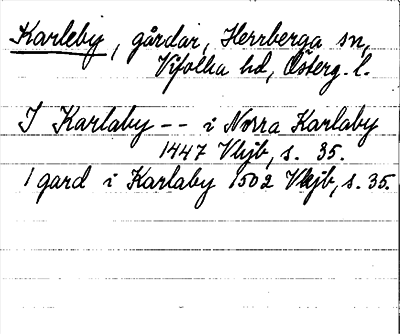 Karleby, gårdar, Herrberga sn,
Vifolka hd, Österg. l.
I Karlaby -- i Norra Karlaby
1447 Vhjb, s. 35.
1 gard i Karlaby 1502 Vhjb, s. 35.